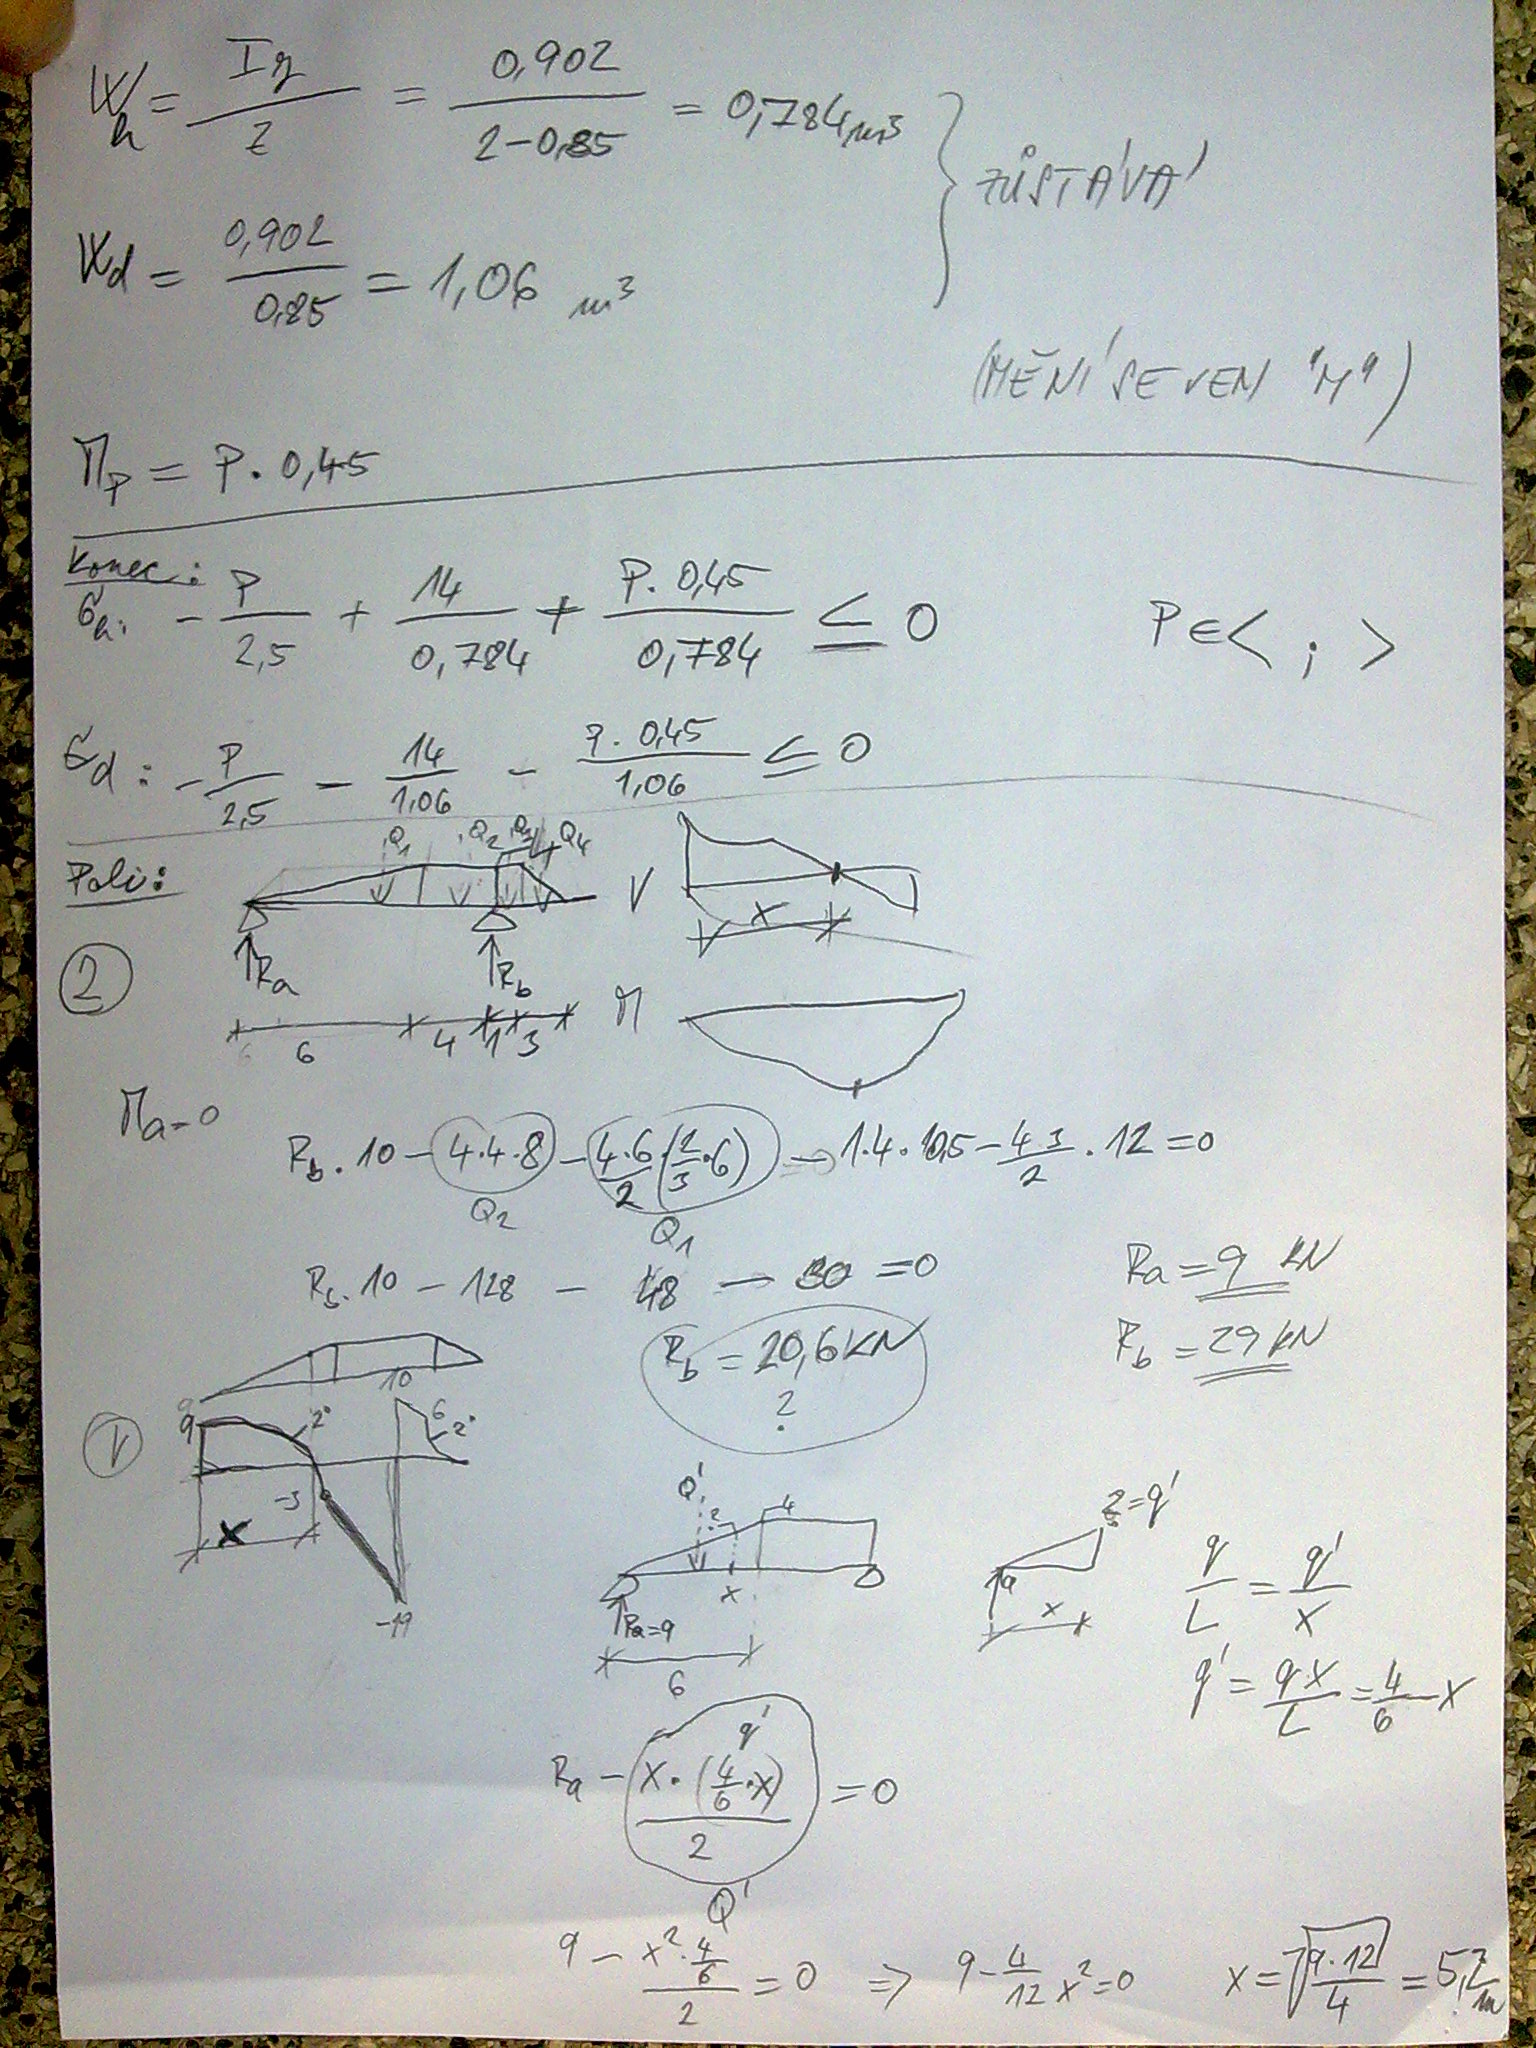 W_h = I_y / z = 0,902 / (2-0,85) = 0,784 m³
ZŮSTÁVÁ
W_d = 0,902 / 0,85 = 1,06 m³
(MĚNÍ SE JEN "M")
M_P = P · 0,45
Konec:
σ_h: - P / 2,5 + 14 / 0,784 + P · 0,45 / 0,784 ≤ 0
P ∈ < ; >
σ_d: - P / 2,5 - 14 / 1,06 - P · 0,45 / 1,06 ≤ 0
Pole:
Q1 Q2 Q3 Q4
V
x
2
Ra Rb
6 4 1 3
M
M_a = 0
R_b · 10 - 4·4·8 - 4·6 / 2 · (2/3 · 6) - 1·4·10,5 - 4·3 / 2 · 12 = 0
Q2 Q1
R_b · 10 - 128 - 48 - 30 = 0
Ra = 9 kN
R_b = 20,6 kN
?
R_b = 29 kN
V
9 2° 10 6 2°
-3
x
-19
Q' 2 4
x
Ra = 9
6
2 = q'
a
x
q / L = q' / x
q' = q·x / L = 4/6 · x
q'
R_a - x · (4/6 · x) / 2 = 0
Q'
9 - x² · 4/6 / 2 = 0 ⇒ 9 - 4/12 x² = 0 x = √(9·12 / 4) = 5,2 m